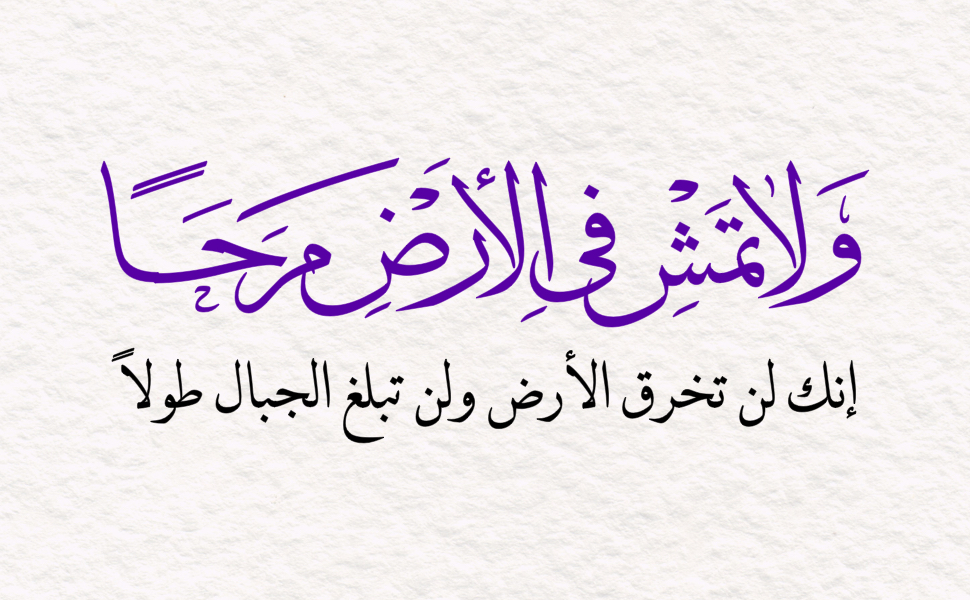 وَلَا تَمْشِ فِي الْأَرْضِ مَرَحًا
إنك لن تخرق الأرض ولن تبلغ الجبال طولاً